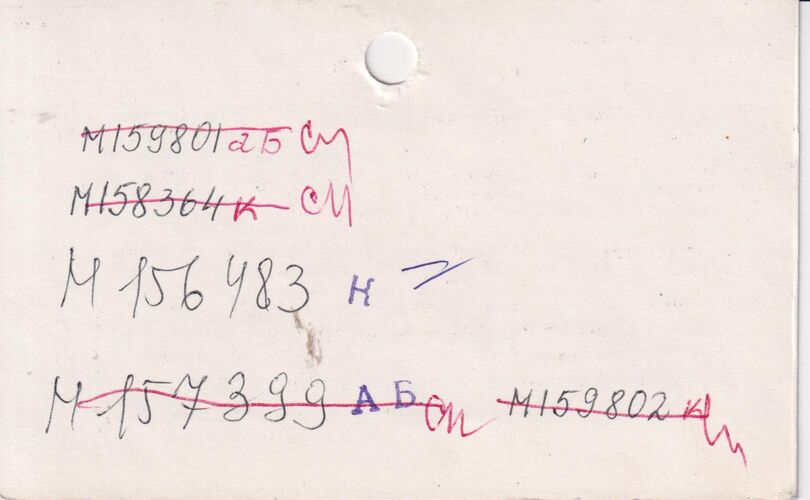 М159801 аБ СИ
М158364 к СИ
М 156483 н
М 157399 АБ СИ М159802 к